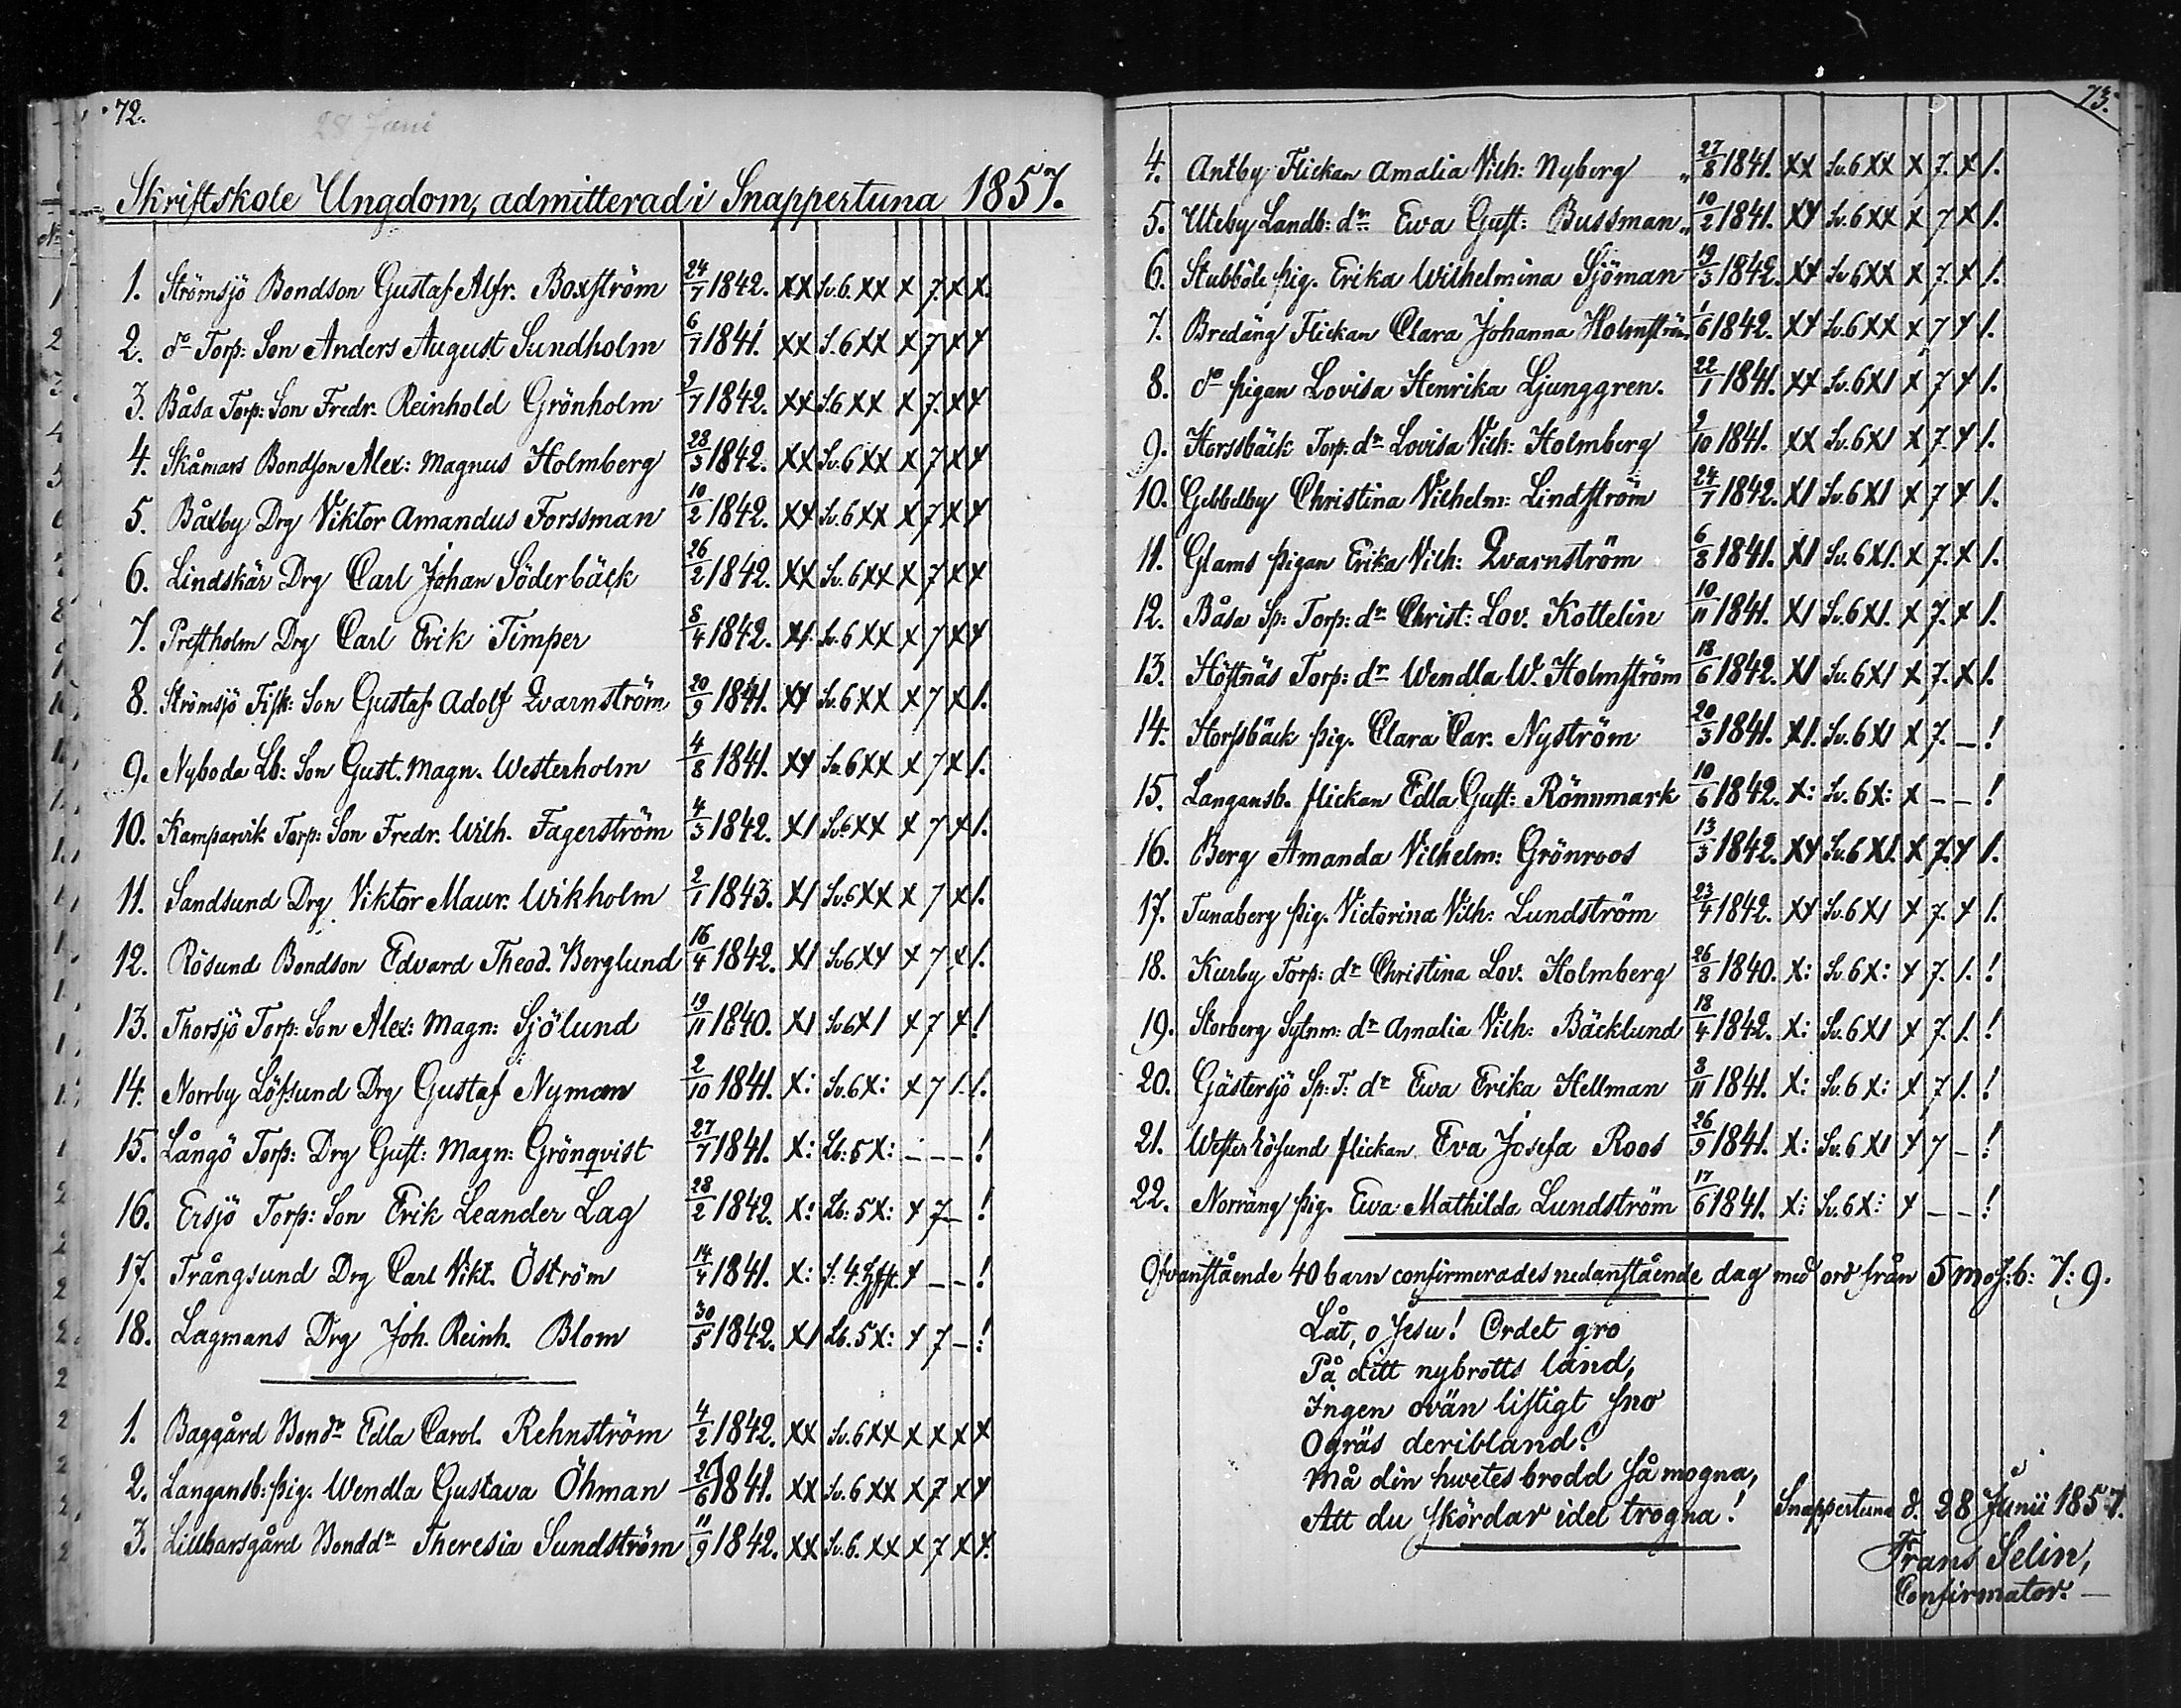 72.
28 Juni
Skriftskole Ungdom, admitterad i Snappertuna 1857.
1. Strömsjö Bondson Gustaf Alfr. Boxström 24/7 1842. XX Sv. 6. XX X 7. X X.
2. do Torp: Son Anders August Sundholm 6/7 1841. XX S. 6 XX X 7 X X
3. Båsa Torp: Son Fredr. Reinhold Grönholm 9/7 1842. XX S. 6 XX X 7. X X
4. Skåmars Bondson Alex: Magnus Holmberg 28/3 1842. XX Sv. 6 XX X 7 X X
5. Båxby Drg Viktor Amandus Forssman 10/2 1842. XX Sv. 6 XX X 7 X X
6. Lindskär Drg Carl Johan Söderbäck 26/2 1842. XX Sv. 6 XX X 7 X X
7. Prestholm Drg Carl Erik Timper 8/4 1842. XI. Sv. 6 XX X 7 X X
8. Strömsjö Fisk: Son Gustaf Adolf Qvarnström 20/9 1841. XX Sv. 6 XX X 7 X 1.
9. Nyboda Lb: Son Gust. Magn. Westerholm 4/8 1841. XX Sv. 6 XX X 7 X 1.
10. Kamparvik Torp: Son Fredr. Wilh. Fagerström 4/3 1842. X1 Sv. 6 XX X 7 X 1.
11. Sandsund Drg Viktor Maur. Wikholm 2/1 1843. X1 Sv. 6 XX X 7 X 1.
12. Rösund Bondson Edvard Theod. Berglund 16/4 1842. X1 Sv 6 XX X 7 X 1.
13. Thorsjö Torp: Son Alex: Magn: Sjölund 19/11 1840. X1 Sv 6 X1 X 7 X !
14. Norrby Löfsund Drg Gustaf Nyman 2/10 1841. X: Sv. 6 X: X 7 1. 1.
15. Långö Torp: Drg Gust: Magn: Grönqvist 27/7 1841. X: Lb: 5 X: - - - !
16. Ersjö Torp: Son Erik Leander Lag 28/2 1842. X: Lb: 5 X: X 7 - !
17. Trångsund Drg Carl Vikt. Öström 14/4 1841. X: S: 4. X - - !
18. Lagmans Drg Joh. Reinh. Blom 30/5 1842. X1 Lb. 5 X: X 7 - !
1. Baggård Bondr Edla Carol. Rehnström 4/2 1842. XX Sv. 6 XX X X X X
2. Langansb: pig. Wendla Gustava Öhman 21/6 1841. XX Sv. 6 XX X 7 X X
3. Lillbarsgård Bonddr Theresia Sundström 11/9 1842. XX Sv. 6. XX X 7 X X.
73.
4. Antby Flickan Amalia Vilh: Nyberg 27/8 1841. XX Sv. 6 XX X 7. X 1.
5. Uteby Landb: dr Ewa Gust: Bussman 10/2 1841. XX Sv. 6 XX X 7 X 1.
6. Stubböle pig. Erika Wilhelmina Sjöman 19/3 1842. XX Sv 6 XX X 7. X 1.
7. Bredäng Flickan Clara Johanna Holmström 1/6 1842. XX Sv. 6 XX X 7 X 1.
8. do pigan Lovisa Henrika Ljunggren. 22/1 1841. XX Sv. 6 X1 X 7 X 1.
9. Horssbäck Torp: dr Lovisa Vilh: Holmberg 9/10 1841. XX Sv. 6 X1 X 7. X 1.
10. Gebbelby Christina Vilhelm: Lindström 24/7 1842. X1 Sv. 6 X1 X 7 X 1.
11. Glams pigan Erika Vilh: Qvarnström 6/8 1841. X1 Sv. 6 X1. X 7. X 1.
12. Båsa Sp: Torp: dr Christ: Lov. Kottelin 10/11 1841. X1 Sv. 6 X1. X 7. X 1.
13. Höstnäs Torp: dr Wendla W. Holmström 18/6 1842. X1 Sv. 6 X1 X 7. X 1.
14. Horssbäck pig. Clara Car. Nyström 20/3 1841. X1. Sv. 6 X1 X 7. - !
15. Langansb. flickan Edla Gust: Rönnmark 10/6 1842. X: Sv. 6 X: X - - !
16. Berg Amanda Vilhelm: Grönroos 13/3 1842. XX Sv. 6 X1. X 7. X 1.
17. Tunaberg pig. Victorina Vilh: Lundström 23/4 1842. XX Sv. 6 X1 X 7. X 1.
18. Kurby Torp: dr Christina Lov. Holmberg 26/8 1840. X: Sv. 6 X: X 7. 1. !
19. Storberg Sytnm: dr Amalia Vilh: Bäcklund 18/4 1842. X: Sv. 6 X1 X 7. 1. !
20. Gästersjö Sp: T: dr Ewa Erika Hellman 8/11 1841. X: Sv. 6 X: X 7 1. !
21. Wester Rösund flickan Eva Josefa Roos 26/9 1841. X: Sv. 6 X1 X 7 - !
22. Norräng pig. Ewa Mathilda Lundström 17/6 1841. X: Sv. 6 X: X - - !
Ofvanstående 40 barn confirmerades nedanstående dag med ord från 5 Mos: 6: 7: 9.
Låt, o Jesu! Ordet gro
På ditt nybrotts land,
Ingen ovän listigt sno
Ogräs deribland!
Må din hvetesbrodd få mogna,
Att du skördar idel trogna!
Snappertuna d. 28 Junii 1857.
Frans Selin,
Confirmator.